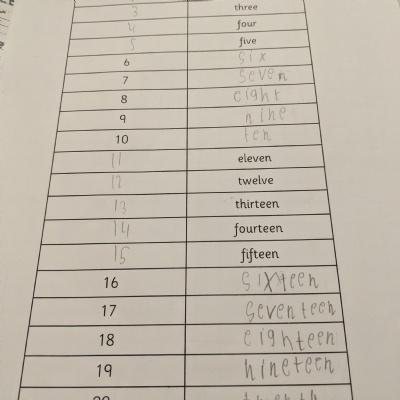 3 three
4 four
5 five
6 six
7 seven
8 eight
9 nine
10 ten
11 eleven
12 twelve
13 thirteen
14 fourteen
15 fifteen
16 sixteen
17 seventeen
18 eighteen
19 nineteen
20